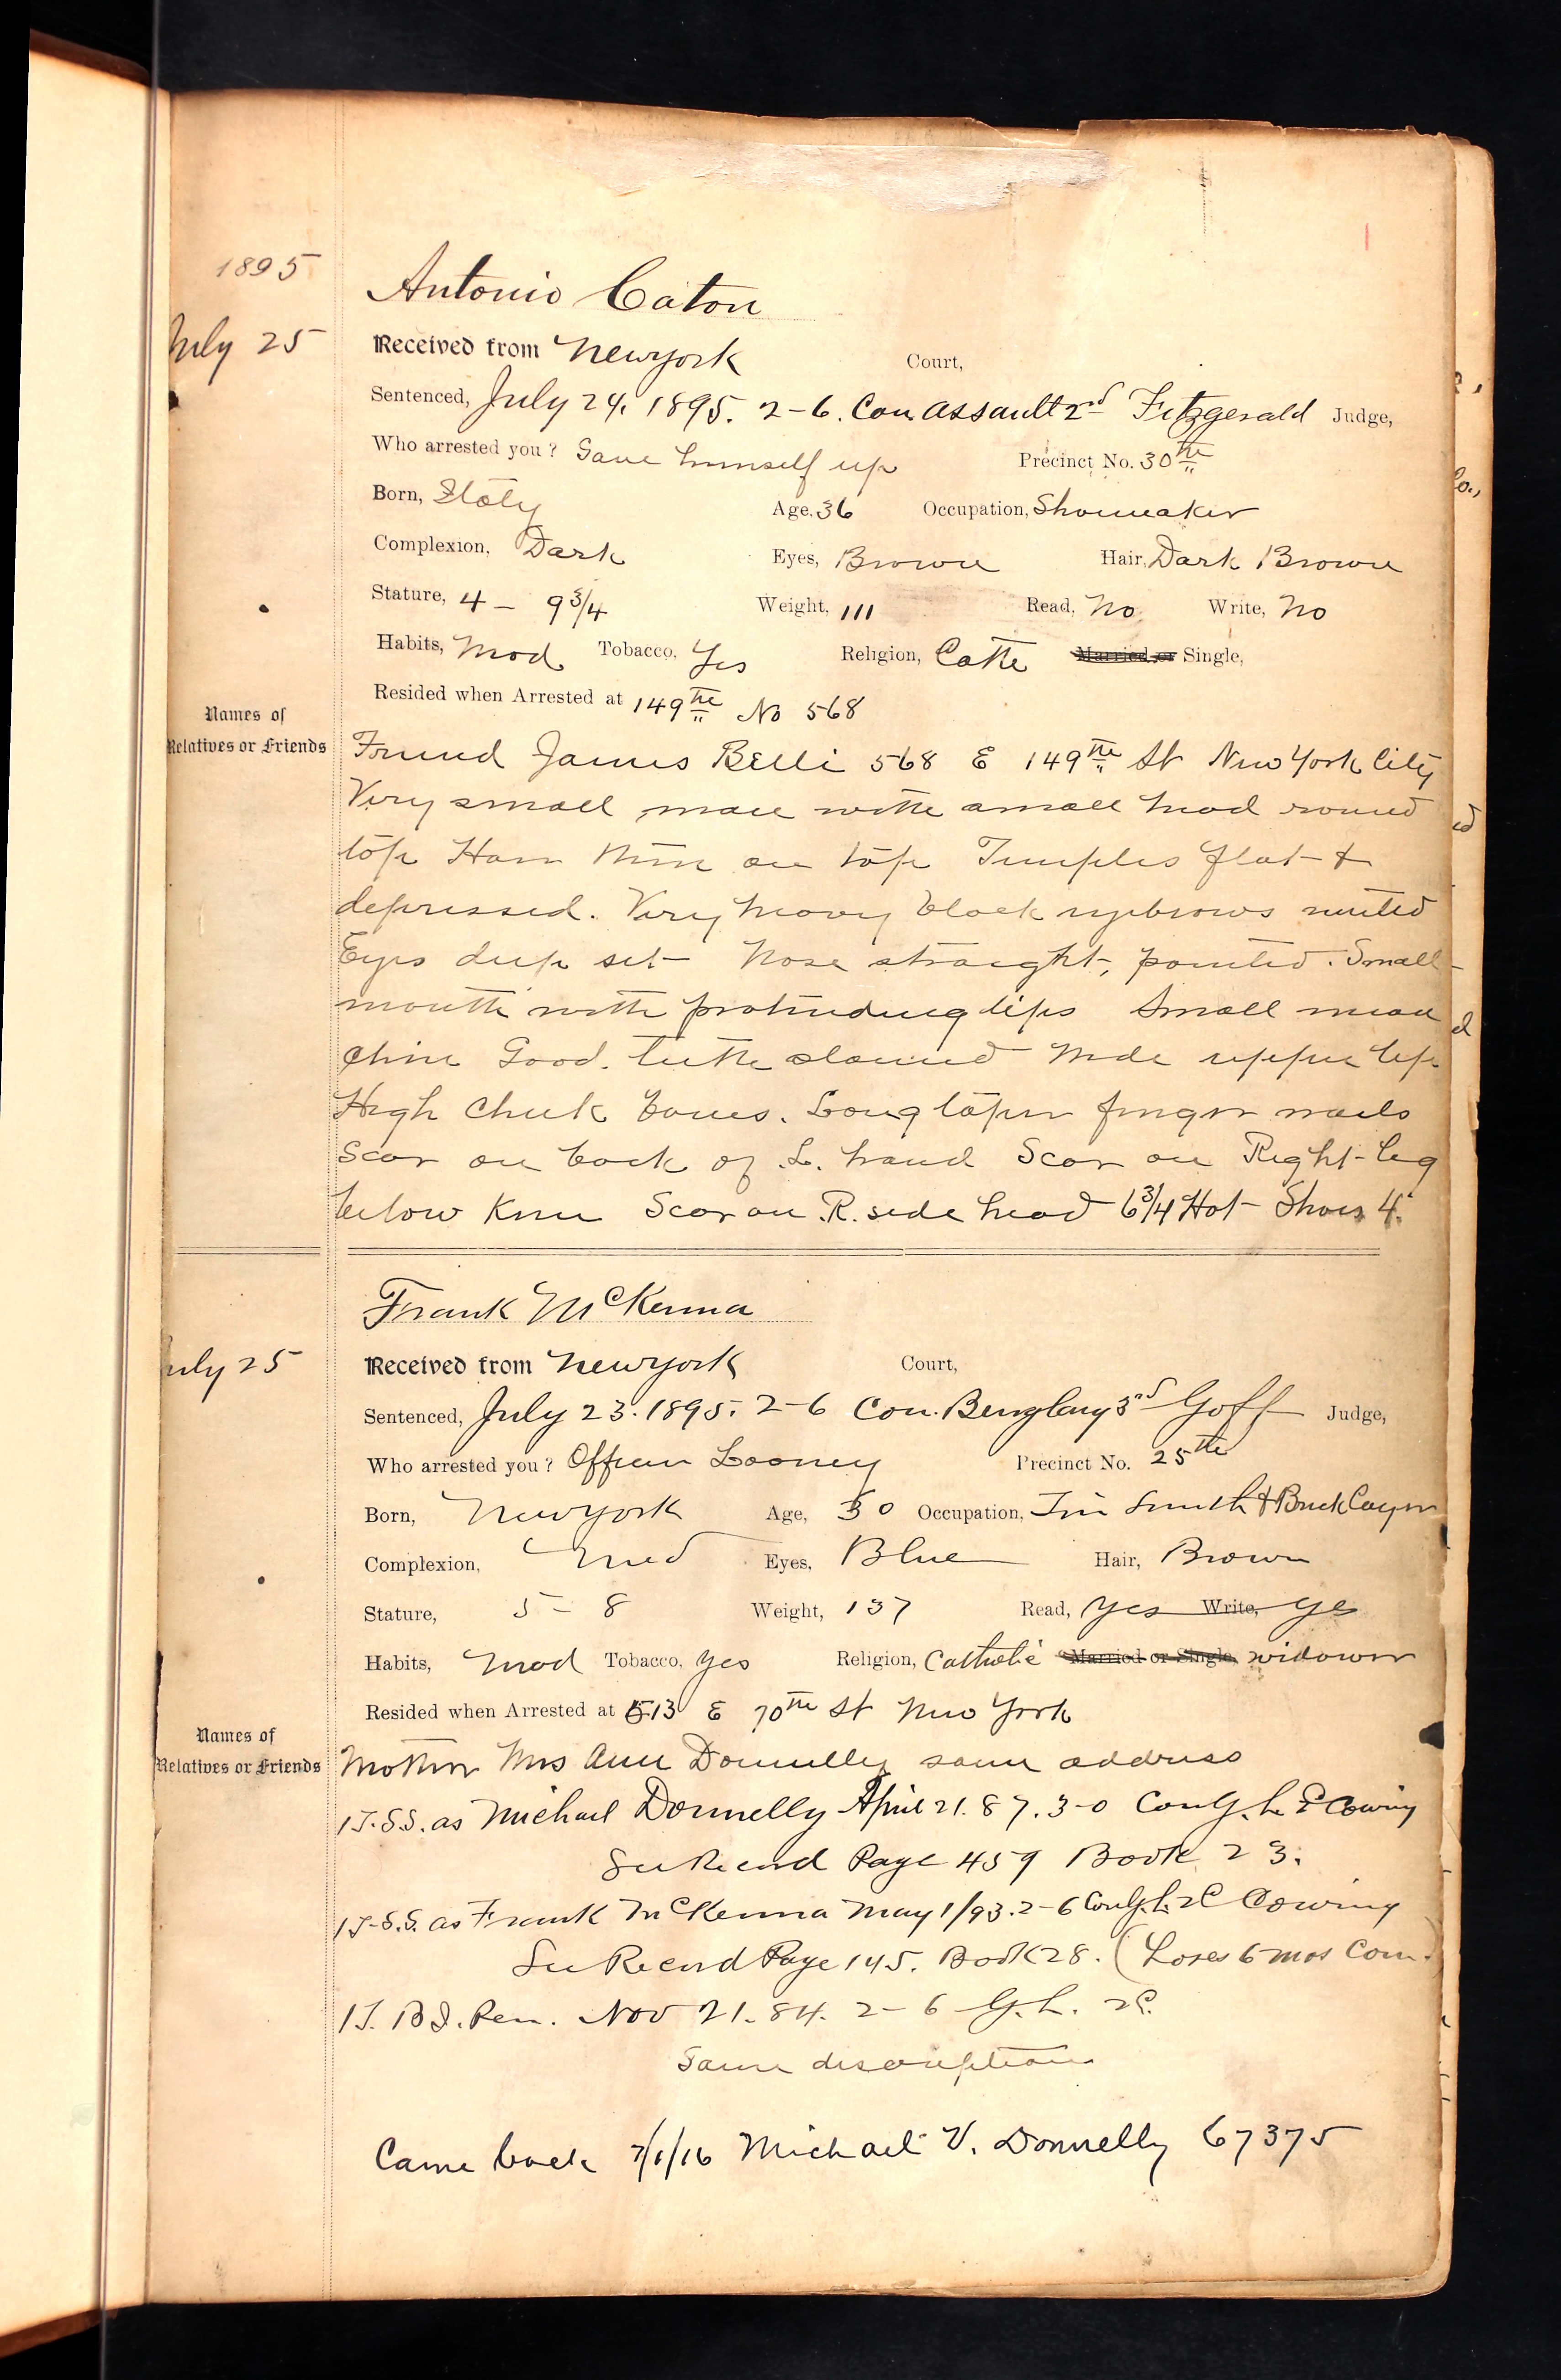 1895
Antonio Caton
July 25
Received from Newyork Court,
Sentenced, July 24. 1895. 2-6. Con Assault 2nd Fitzgerald Judge,
Who arrested you? Gave himself up Precinct No. 30th
Born, Italy Age, 36 Occupation, Shoemaker
Complexion, Dark Eyes, Brown Hair, Dark Brown
Stature, 4 - 9 3/4 Weight, 111 Read, No Write, No
Habits, Mod Tobacco, Yes Religion, Cath Married or Single,
Resided when Arrested at 149th No 568
Names of
Relatives or Friends
Friend James Belli 568 E 149th St New York City
Very small man with a small head round
top Hair thin on top Temples flat &
depressed. Very heavy black eyebrows united
Eyes deep set Nose straight, pointed. Small
mouth with protruding lips Small mean
chin Good. teeth stained Wide upper lip
High cheek bones. Long taper finger nails
Scar on back of L. hand Scar on Right leg
below Knee Scar on R. side head 6 3/4 Hat Shoes 4.
Frank McKenna
July 25
Received from Newyork Court,
Sentenced, July 23. 1895. 2-6 Con. Burglary 3rd Goff Judge,
Who arrested you? Officer Looney Precinct No. 25th
Born, Newyork Age, 30 Occupation, Tin Smith & Brick Layer
Complexion, Med Eyes, Blue Hair, Brown
Stature, 5 - 8 Weight, 137 Read, Yes Write, Yes
Habits, Mod Tobacco, Yes Religion, Catholic Married or Single, widower
Resided when Arrested at 513 E 70th St New York
Names of
Relatives or Friends
Mother Mrs Ann Donnelly same address
1T. S.S. as Michael Donnelly April 21. 87. 3-0 Con G. L. Cowing
See Record Page 459 Book 23.
1T. S.S. as Frank McKenna May 1/93. 2-6 Con G. L. 2d Cowing
See Record Page 145. Book 28. (Loses 6 mos Com.
1T. B.I. Pen. Nov 21. 84. 2-6 G. L. 2d.
Same description
Came back 7/1/16 Michael V. Donnelly 67375